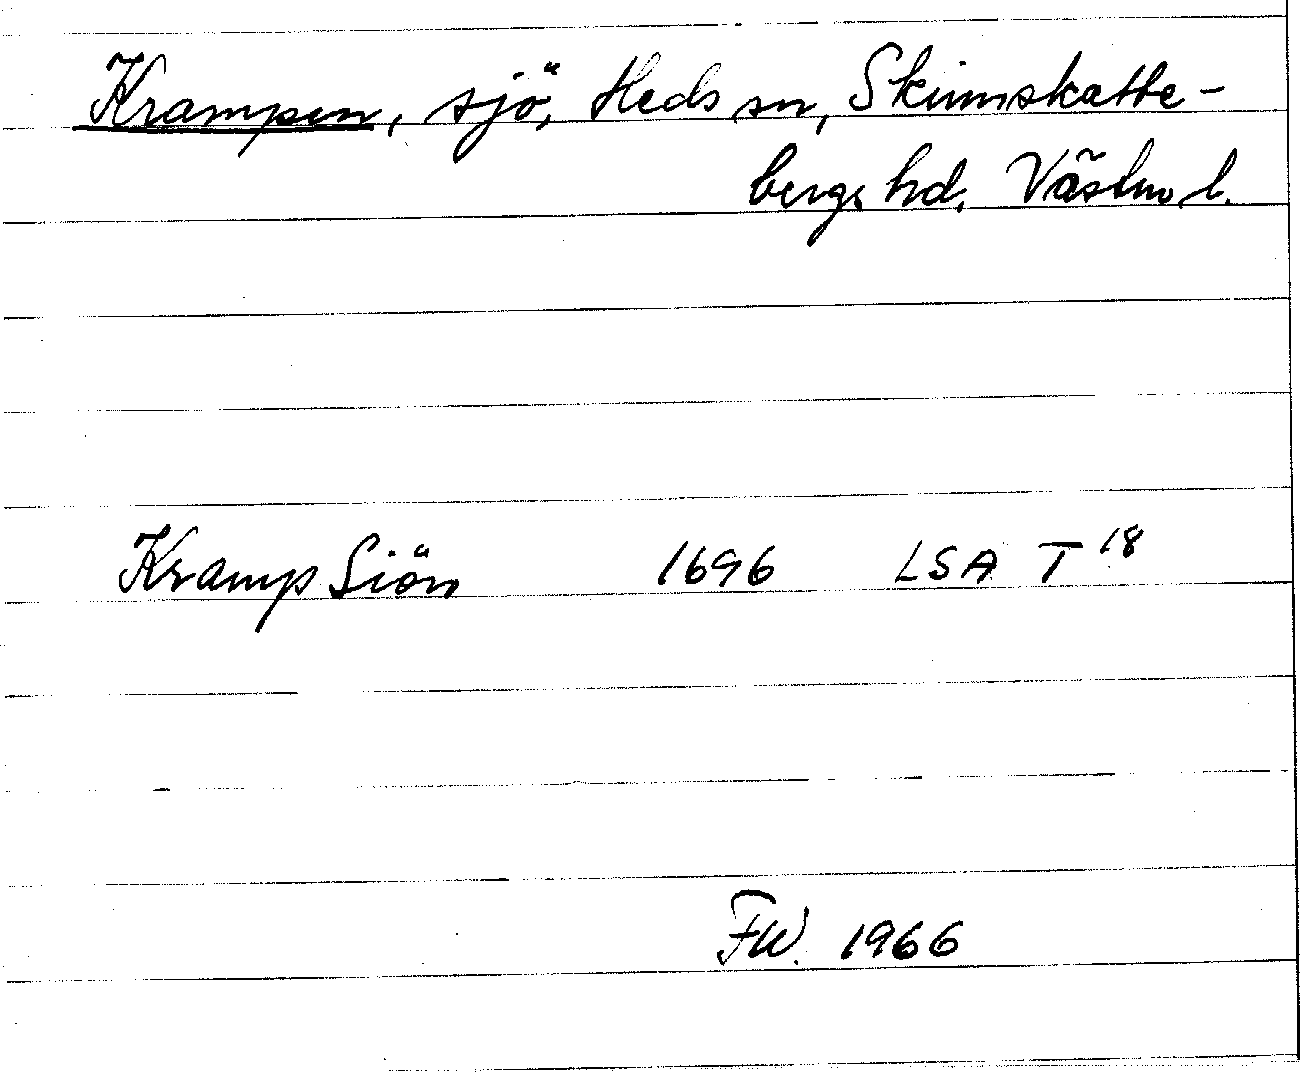 Krampen, sjö, Heds sn, Skinnskatte-
bergs hd, Västm l.
Kramp Siön 1696 LSA T 18
FW. 1966